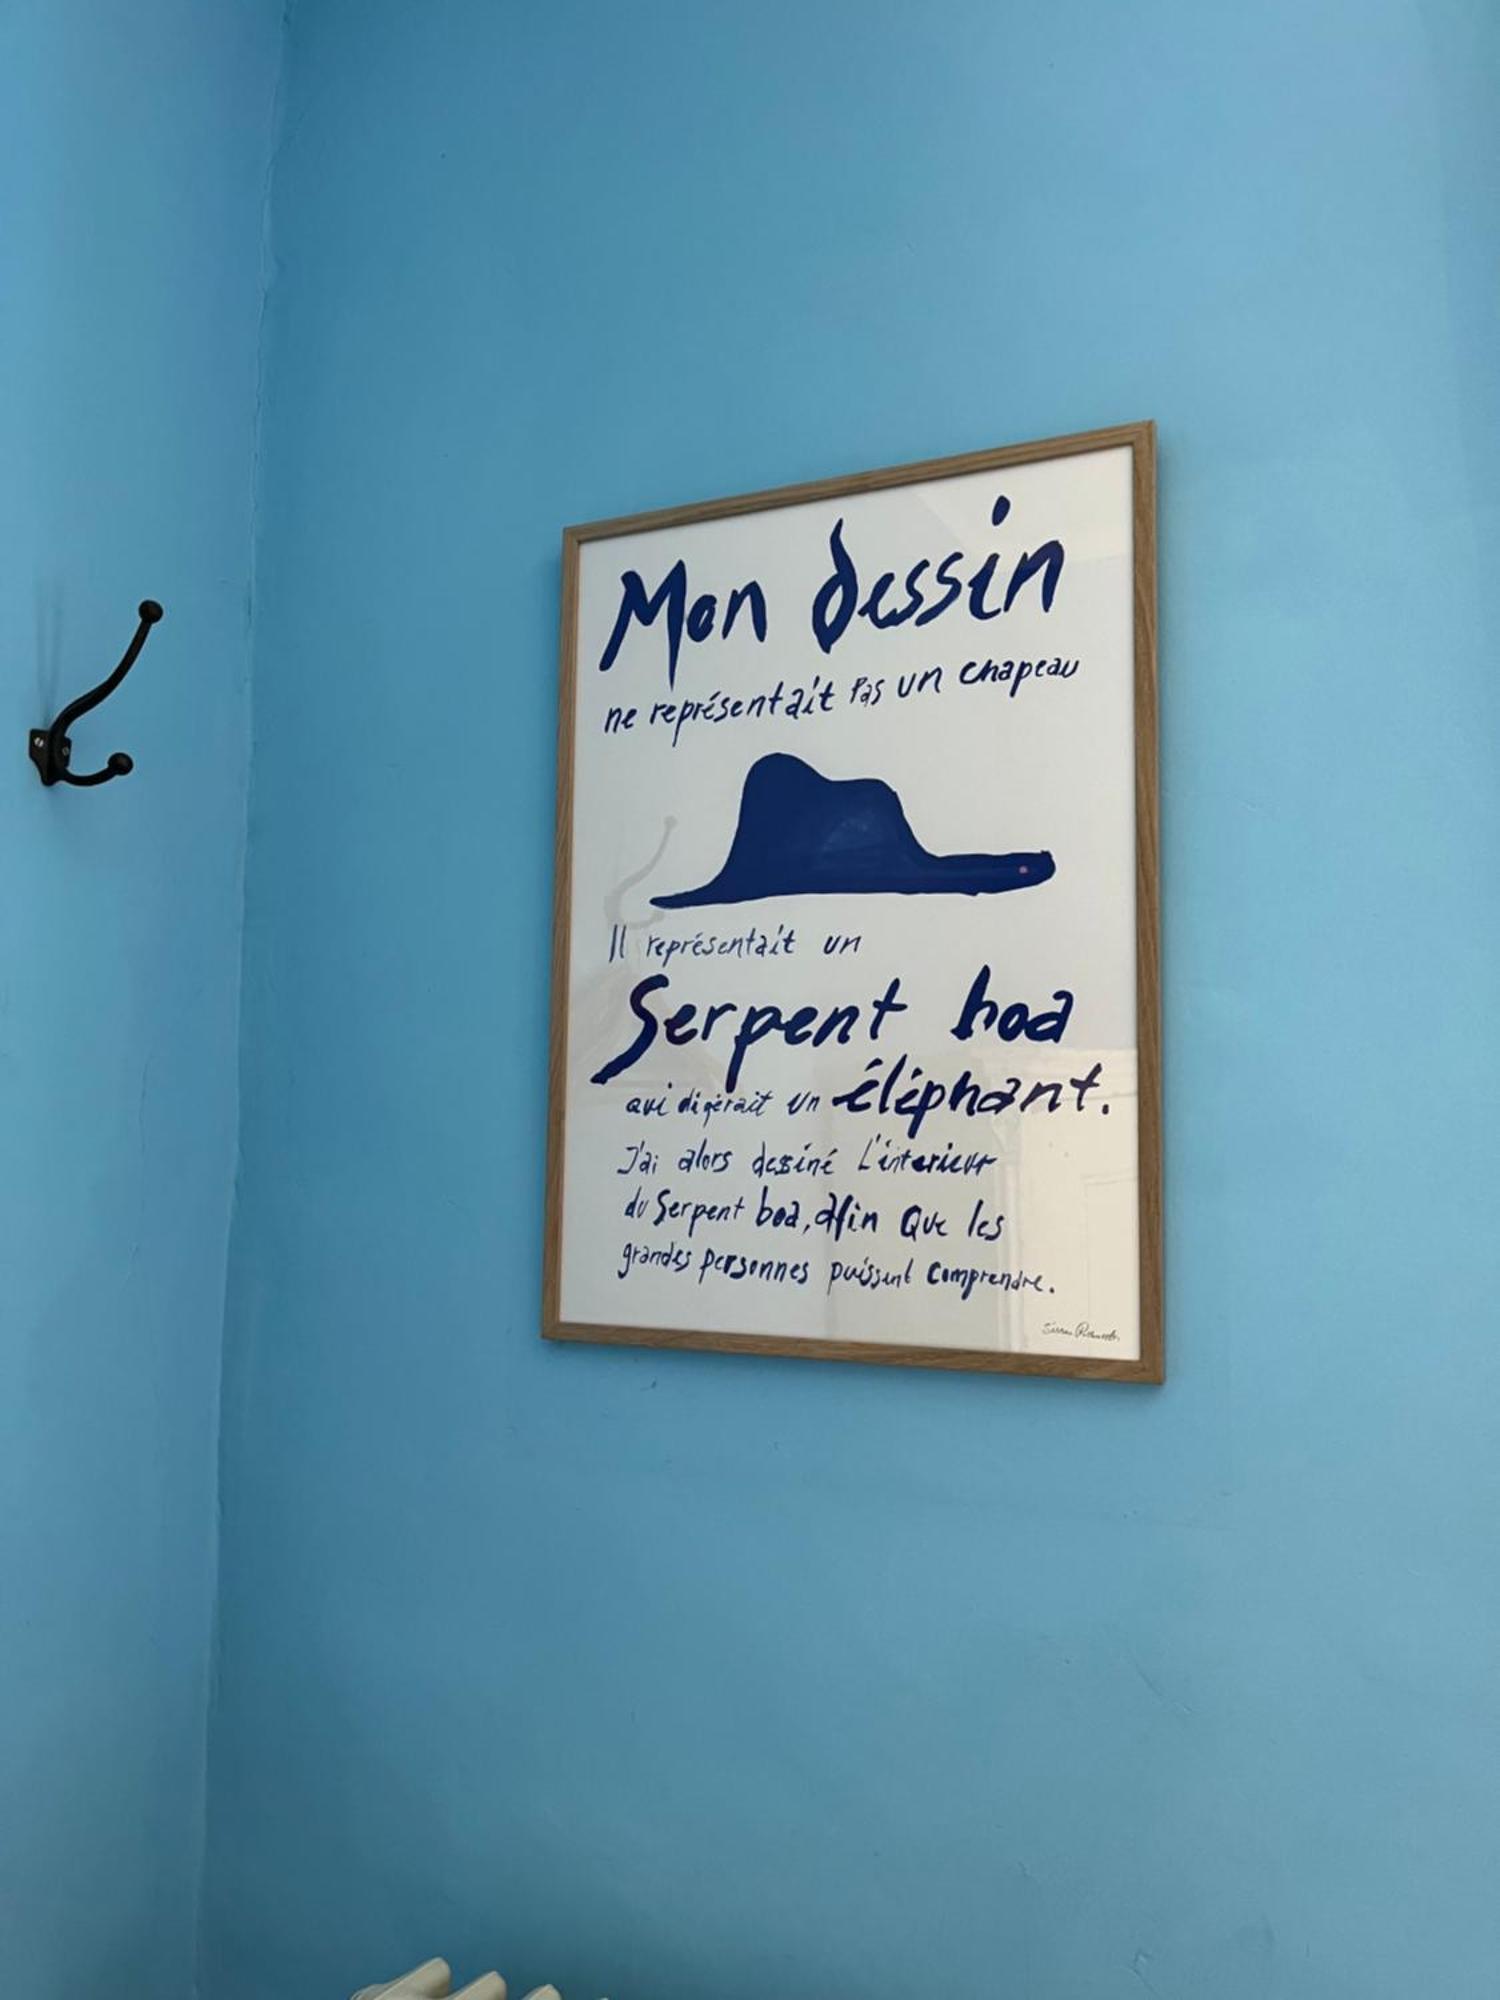 Mon dessin
ne représentait Pas un chapeau
Il représentait un
Serpent boa
qui digérait un éléphant.
J'ai alors dessiné L'interieur
du Serpent boa, afin Que les
grandes personnes puissent comprendre.